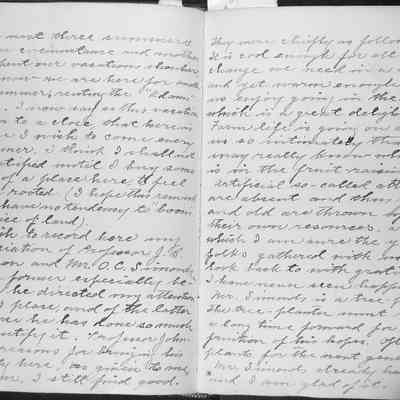 next three summers
circumstance and another
our vacations elsewhere
now we are here for another
summer, renting the "Adams"
. I now say as this vacation
to a close that herein
I wish to come every
summer. I think I shall not
satisfied until I buy some
of a place here & feel
rooted (I hope this remark
have no tendency to boom
price of land)
to record here my
appreciation of Professor J. B.
and Mr. O. C. Simonds
former especially be-
he directed my attention
place, and of the latter
he has done so much
beautify it. Professor John-
reasons for bringing his
here, as given to me,
I still find good.
They were chiefly as follows
It is cool enough for all
change we need in a
and yet warm enough
we enjoy going in the
which is a great delight
Farm life is going on a
us so intimately that
may really know wh
is in the fruit raising
artificial so-called att
are absent and thus
and old are thrown up
their own resources, a
which I am sure the y
folks gathered with us
look back to with grati
I have never seen happ
Mr. Simonds is a tree-p
The tree-planter must
a long time forward for
fruition of his hopes. Oft
plants for the next gene
Mr. Simonds already ha
and I am glad of it.